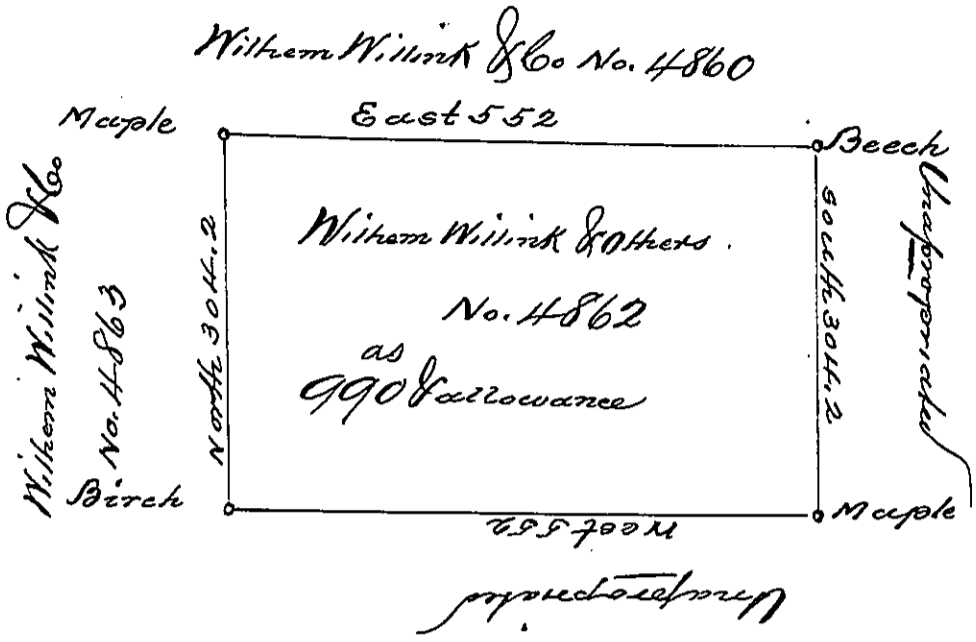 Wilhem Willink & Co No. 4860
East 552
Maple
Beech
Wilhem Willink & Co
No. 4863
North 304.2
Wilhem Willink & Others.
No. 4862
as
990 & allowance
South 304.2
Unapropriated
Birch
Maple
West 552
Unapropriated